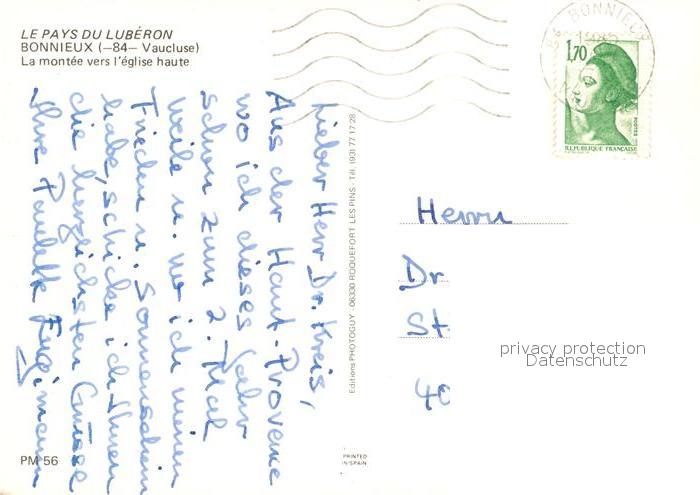 LE PAYS DU LUBÉRON
BONNIEUX (–84– Vaucluse)
La montée vers l'église haute
BONNIEUX
1,70
POSTES
REPUBLIQUE FRANÇAISE
Lieber Herr Dr. Kreis,
Aus der Haut-Provence
wo ich dieses Jahr
schon zum 2. Mal
weile u. wo ich meinen
Frieden u. Sonnenschein
habe, schicke ich Ihnen
die herzlichsten Grüsse
Ihre Paulette
Editions PHOTOGUY - 06330 ROQUEFORT LES PINS - Tél. (93) 77 17 28
Herrn
Dr
St.
40
privacy protection
Datenschutz
PM 56
PRINTED
IN SPAIN